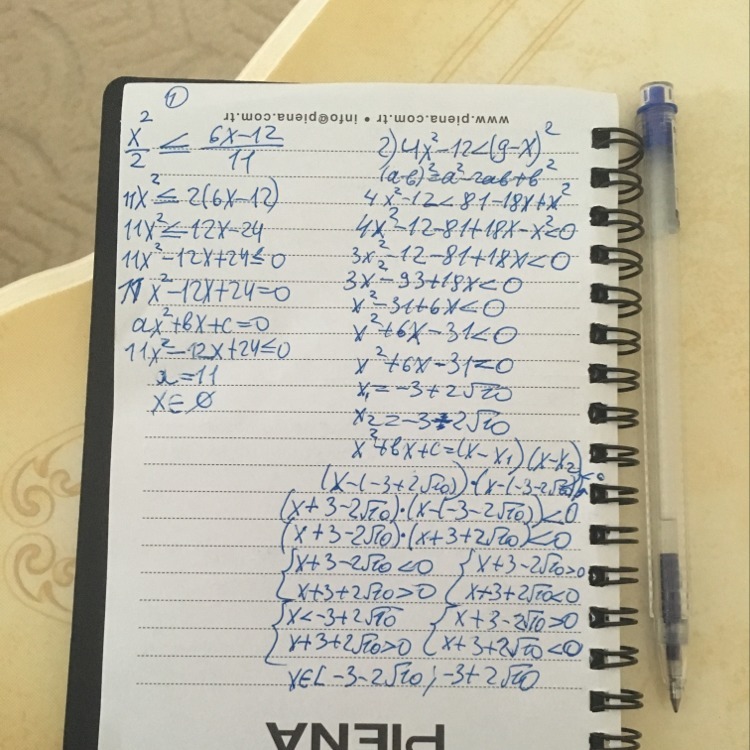 www.piena.com.tr • info@piena.com.tr
①
x²/2 ≤ (6x-12)/11
11x² ≤ 2(6x-12)
11x² ≤ 12x-24
11x²-12x+24≤0
11x²-12x+24=0
ax²+bx+c=0
11x²-12x+24≤0
a=11
x∈∅
2) 4x²-12<(9-x)²
(a-b)²=a²-2ab+b²
4x²-12<81-18x+x²
4x²-12-81+18x-x²<0
3x²-12-81+18x<0
3x²-93+18x<0
x²-31+6x<0
x²+6x-31<0
x²+6x-31=0
x₁=-3+2√10
x₂=-3-2√10
x²+bx+c=(x-x₁)(x-x₂)
(x-(-3+2√10))·(x-(-3-2√10))<0
(x+3-2√10)·(x-(-3-2√10))<0
(x+3-2√10)·(x+3+2√10)<0
{x+3-2√10<0 {x+3-2√10>0
x+3+2√10>0 x+3+2√10<0
{x<-3+2√10 {x+3-2√10>0
x+3+2√10>0 x+3+2√10<0
x∈[-3-2√10; -3+2√10
PIENA